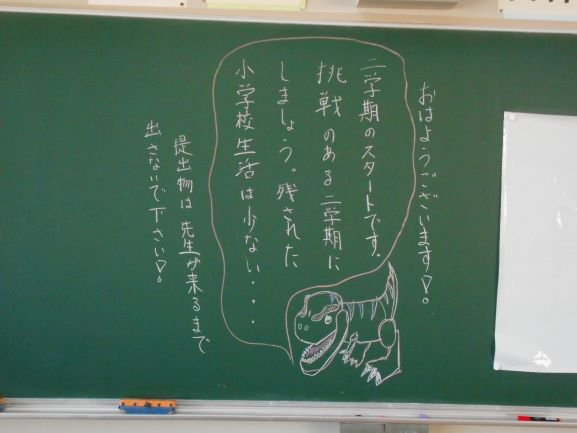 おはようございます!。
二学期のスタートです。
挑戦のある二学期に
しましょう。残された
小学校生活は少ない・・・
提出物は先生が来るまで
出さないで下さい!。